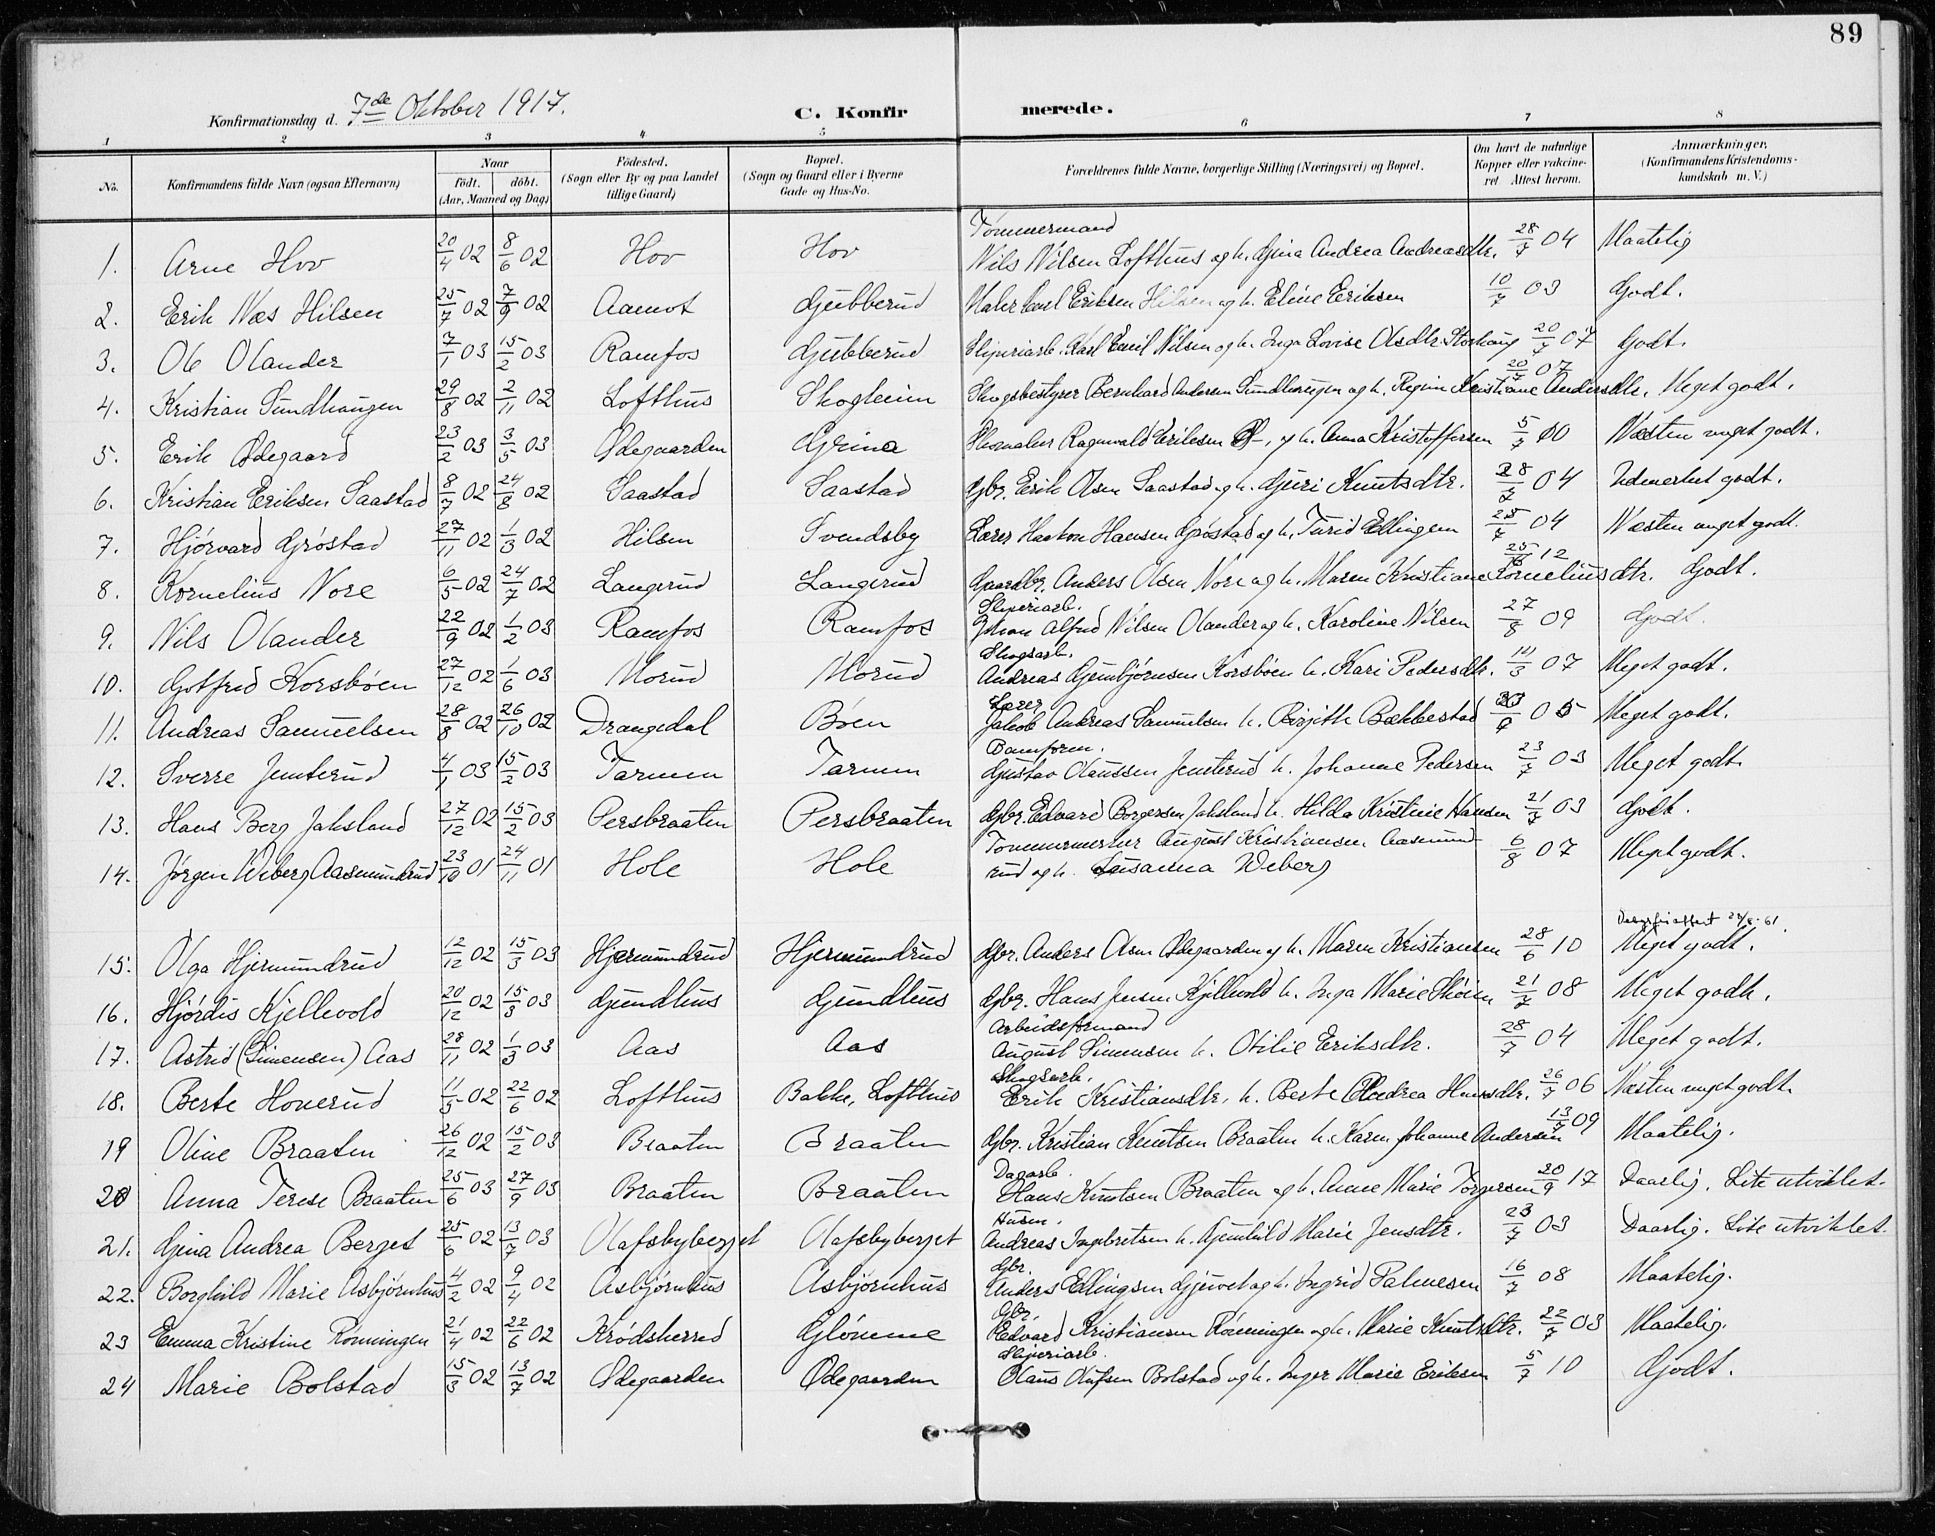 89
Konfirmationsdag d. 7de Oktober 1917.
C. Konfirmerede.
1 2 3 4 5 6 7 8
No. Konfirmandens fulde Navn (ogsaa Efternavn) Naar født. døbt. (Aar, Maaned og Dag) Fødested. (Sogn eller By og paa Landet tillige Gaard) Bopæl. (Sogn og Gaard eller i Byerne Gade og Hus-No. Forældrenes fulde Navne, borgerlige Stilling (Næringsvei) og Bopæl. Om havt de naturlige Kopper eller vakcineret. Attest herom. Anmærkninger, (Konfirmandens Kristendomskundskab m. V.)
Tømmermand
1. Arne Hov 20/4 02 8/6 02 Hov Hov Nils Nilsen Lofthus og h. Gina Andrea Andreasdtr. 28/7 04 Maatelig
2. Erik Næs Hilsen 25/7 02 7/9 02 Aamot Gubberud Maler Carl Eriksen Hilsen og h. Eline Eriksen 10/7 03 Godt.
3. Ole Olander 7/1 03 15/2 03 Ramfos Gubberud Sliperiarb. Karl Emil Nilsen og h. Inga Lovise Olsdtr. Storhaug 20/7 07 Godt.
4. Kristian Sundhaugen 29/8 02 2/11 02 Lofthus Skogheim Skogsbestyrer Bernhard Andersen Sundhaugen og h. Regine Kristiane Andersdtr. 20/7 07 Meget godt.
5. Erik Ødegaard 23/2 03 3/5 03 Ødegaarden Grina Skomaker Ragnvald Eriksen Ø-, og h. Anna Kristoffersen 5/7 10 Næsten meget godt.
6. Kristian Eriksen Saastad 8/7 02 24/8 02 Saastad Saastad Gbr. Erik Olsen Saastad og h. Guri Knutsdtr. 28/7 04 Udmerket godt.
7. Hjørvard Grøstad 27/11 02 1/3 02 Hilsen Svendsby Lærer Haakon Hansen Grøstad og h. Turid Ellingsen 25/7 04 Næsten meget godt.
8. Kornelius Nore 6/5 02 24/7 02 Langerud Langerud Gaardbr. Anders Olsen Nore og h. Maren Kristiane Korneliusdtr. 12 Godt.
Sliperiarb.
9. Nils Olander 22/9 02 1/2 03 Ramfos Ramfos Johan Alfred Nilsen Olander og h. Karoline Nilsen 27/8 09 Godt.
Skogsarb.
10. Gotfred Korsbøen 27/12 02 1/6 03 Morud Morud Andreas Gunbjørnsen Korsbøen h. Kari Pedersdtr. 14/3 07 Meget godt.
Lærer
11. Andreas Samuelsen 28/8 02 26/10 02 Drangedal Bøen Jakob Andreas Samuelsen h. Birgithe Bækkestad 05 Meget godt.
12. Sverre Jemterud 4/1 03 15/2 03 Tarmen Tarmen Gustav Olaussen Jemterud h. Johanne Pedersen 23/7 03 Meget godt.
13. Hans Berg Jaksland 27/12 02 15/2 03 Persbraaten Persbraaten Gbr. Edvard Borgersen Jaksland h. Hilda Kristine Hansen 21/7 03 Godt.
14. Jørgen Weberg Aasmundrud 23/10 01 24/11 01 Hole Hole Tømmermerker August Kristiansen Aasmund-
rud og h. Susanna Weberg 6/8 07 Meget godt.
15. Olga Hjermundrud 12/12 02 15/3 03 Hjermundrud Hjermundrud Gbr. Anders Olsen Ødegaarden og h. Maren Kristiansen 28/6 10 Meget godt.
16. Hjørdis Kjellevold 20/12 02 15/3 03 Gundhus Gundhus Gbr. Hans Jensen Kjellevold h. Inga Marie Skøien 21/7 08 Meget godt.
Arbeidsformand
17. Astrid (Simensen) Aas 28/11 02 1/3 03 Aas Aas August Simensen h. Otilie Eriksdtr. 28/7 04 Meget godt.
Skogsarb.
18. Berte Hoverud 11/5 02 22/6 02 Lofthus Bakke, Lofthus Erik Kristiansdtr. h. Berte Andrea Hansdtr. 26/7 06 Næsten meget godt.
19 Oline Braaten 26/12 02 15/2 03 Braaten Braaten Gbr. Kristian Knutsen Braaten h. Karen Johanne Andersen 13/7 09 Maatelig.
Dagarb.
20 Anna Terese Braaten 25/6 03 27/9 03 Braaten Braaten Hans Knutsen Braaten og h. Anne Marie Torgersen 20/9 17 Daarlig. Lite utviklet.
Husm.
21. Gina Andrea Berget 25/6 02 13/7 03 Olafsbyberget Olafsbyberget Andreas Ingebretsen h. Gunhild Marie Jensdtr. 23/7 03 Daarlig. Lite utviklet.
Gbr.
22. Borghild Marie Asbjørnhus 4/2 02 9/4 02 Asbjørnhus Asbjørnhus Anders Ellingsen Gjuvet og h. Ingrid Palmesen 16/7 08 Maatelig.
Gbr.
23 Emma Kristine Rønningen 21/4 02 22/6 02 Krødsherred Glømme Edvard Kristiansen Rønningen og h. Marie Knutsdtr. 22/7 03 Maatelig.
Sliperiarb.
24 Marie Bolstad 15/3 02 13/7 02 Ødegaarden Ødegaarden Olaus Olufsen Bolstad og h. Inger Marie Eriksen 5/7 10 Godt.